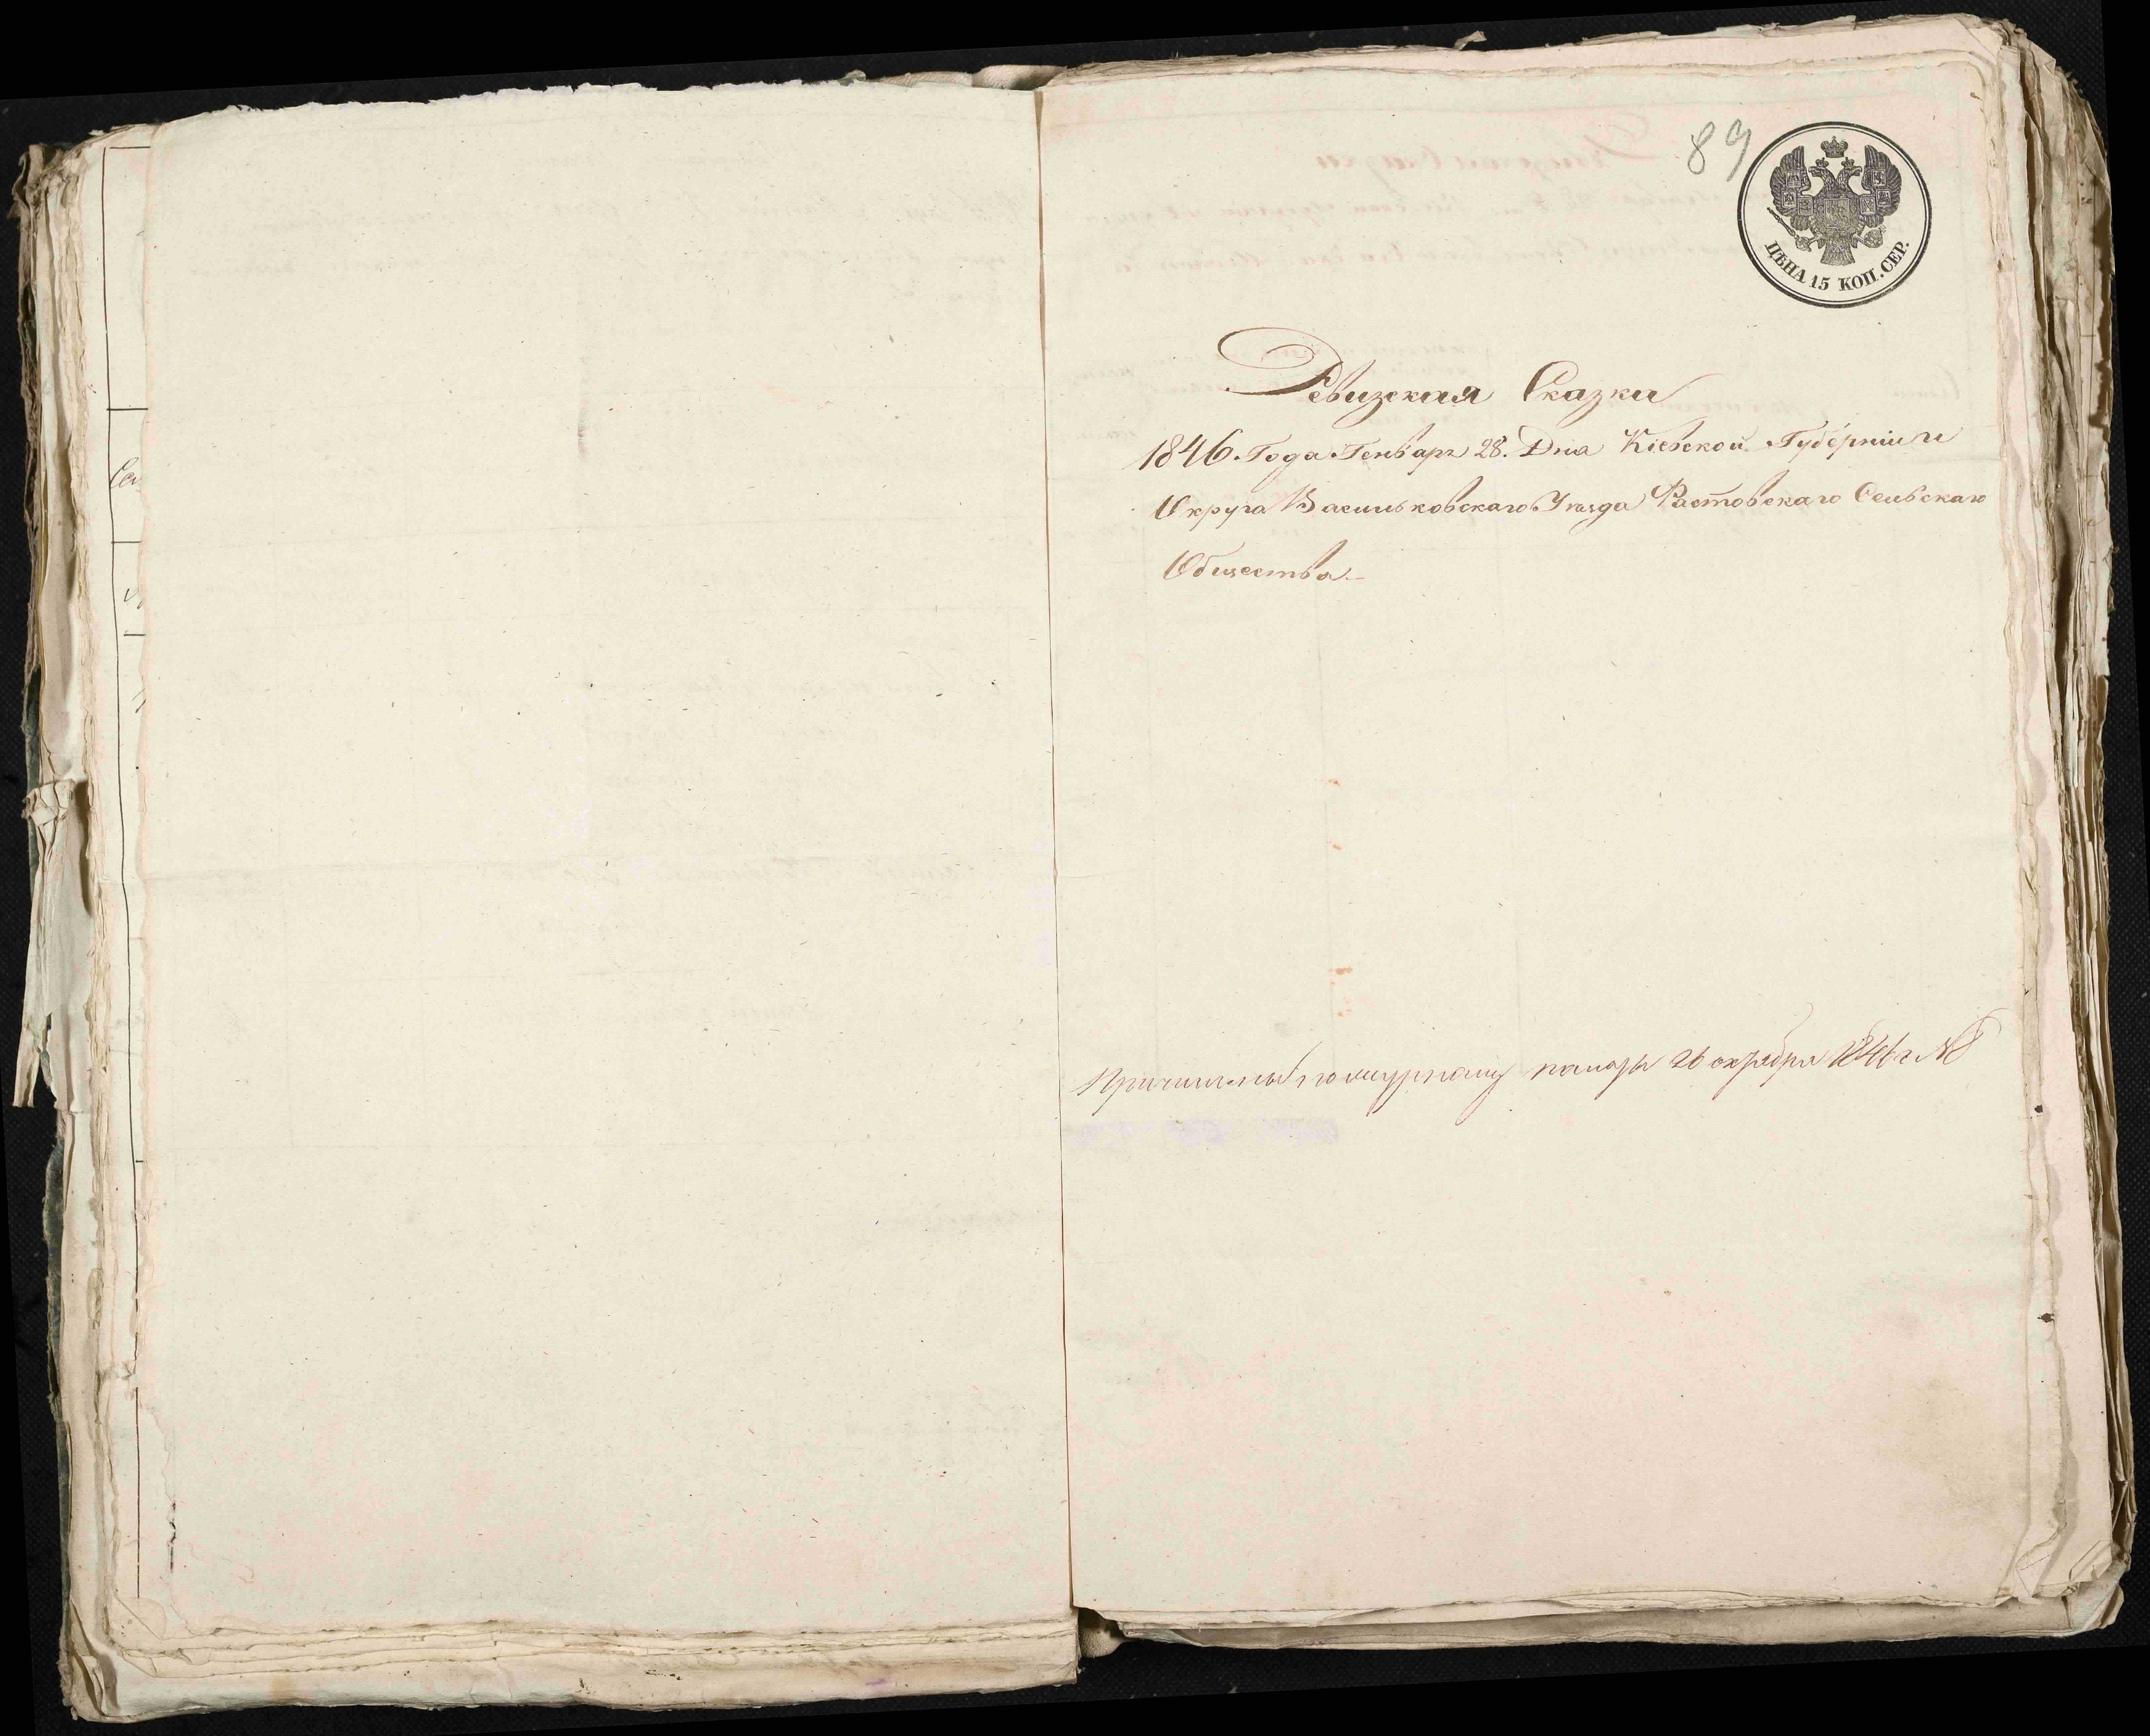 89
ЦѢНА 15 КОП. СЕР.
Ревизская Сказка
1846 Года Генваря 28. Дня Кіевской Губерніи и
Округа Васильковскаго Уезда Фастовскаго Сельскаго
Общества
палаты 26 октября 1846 г №